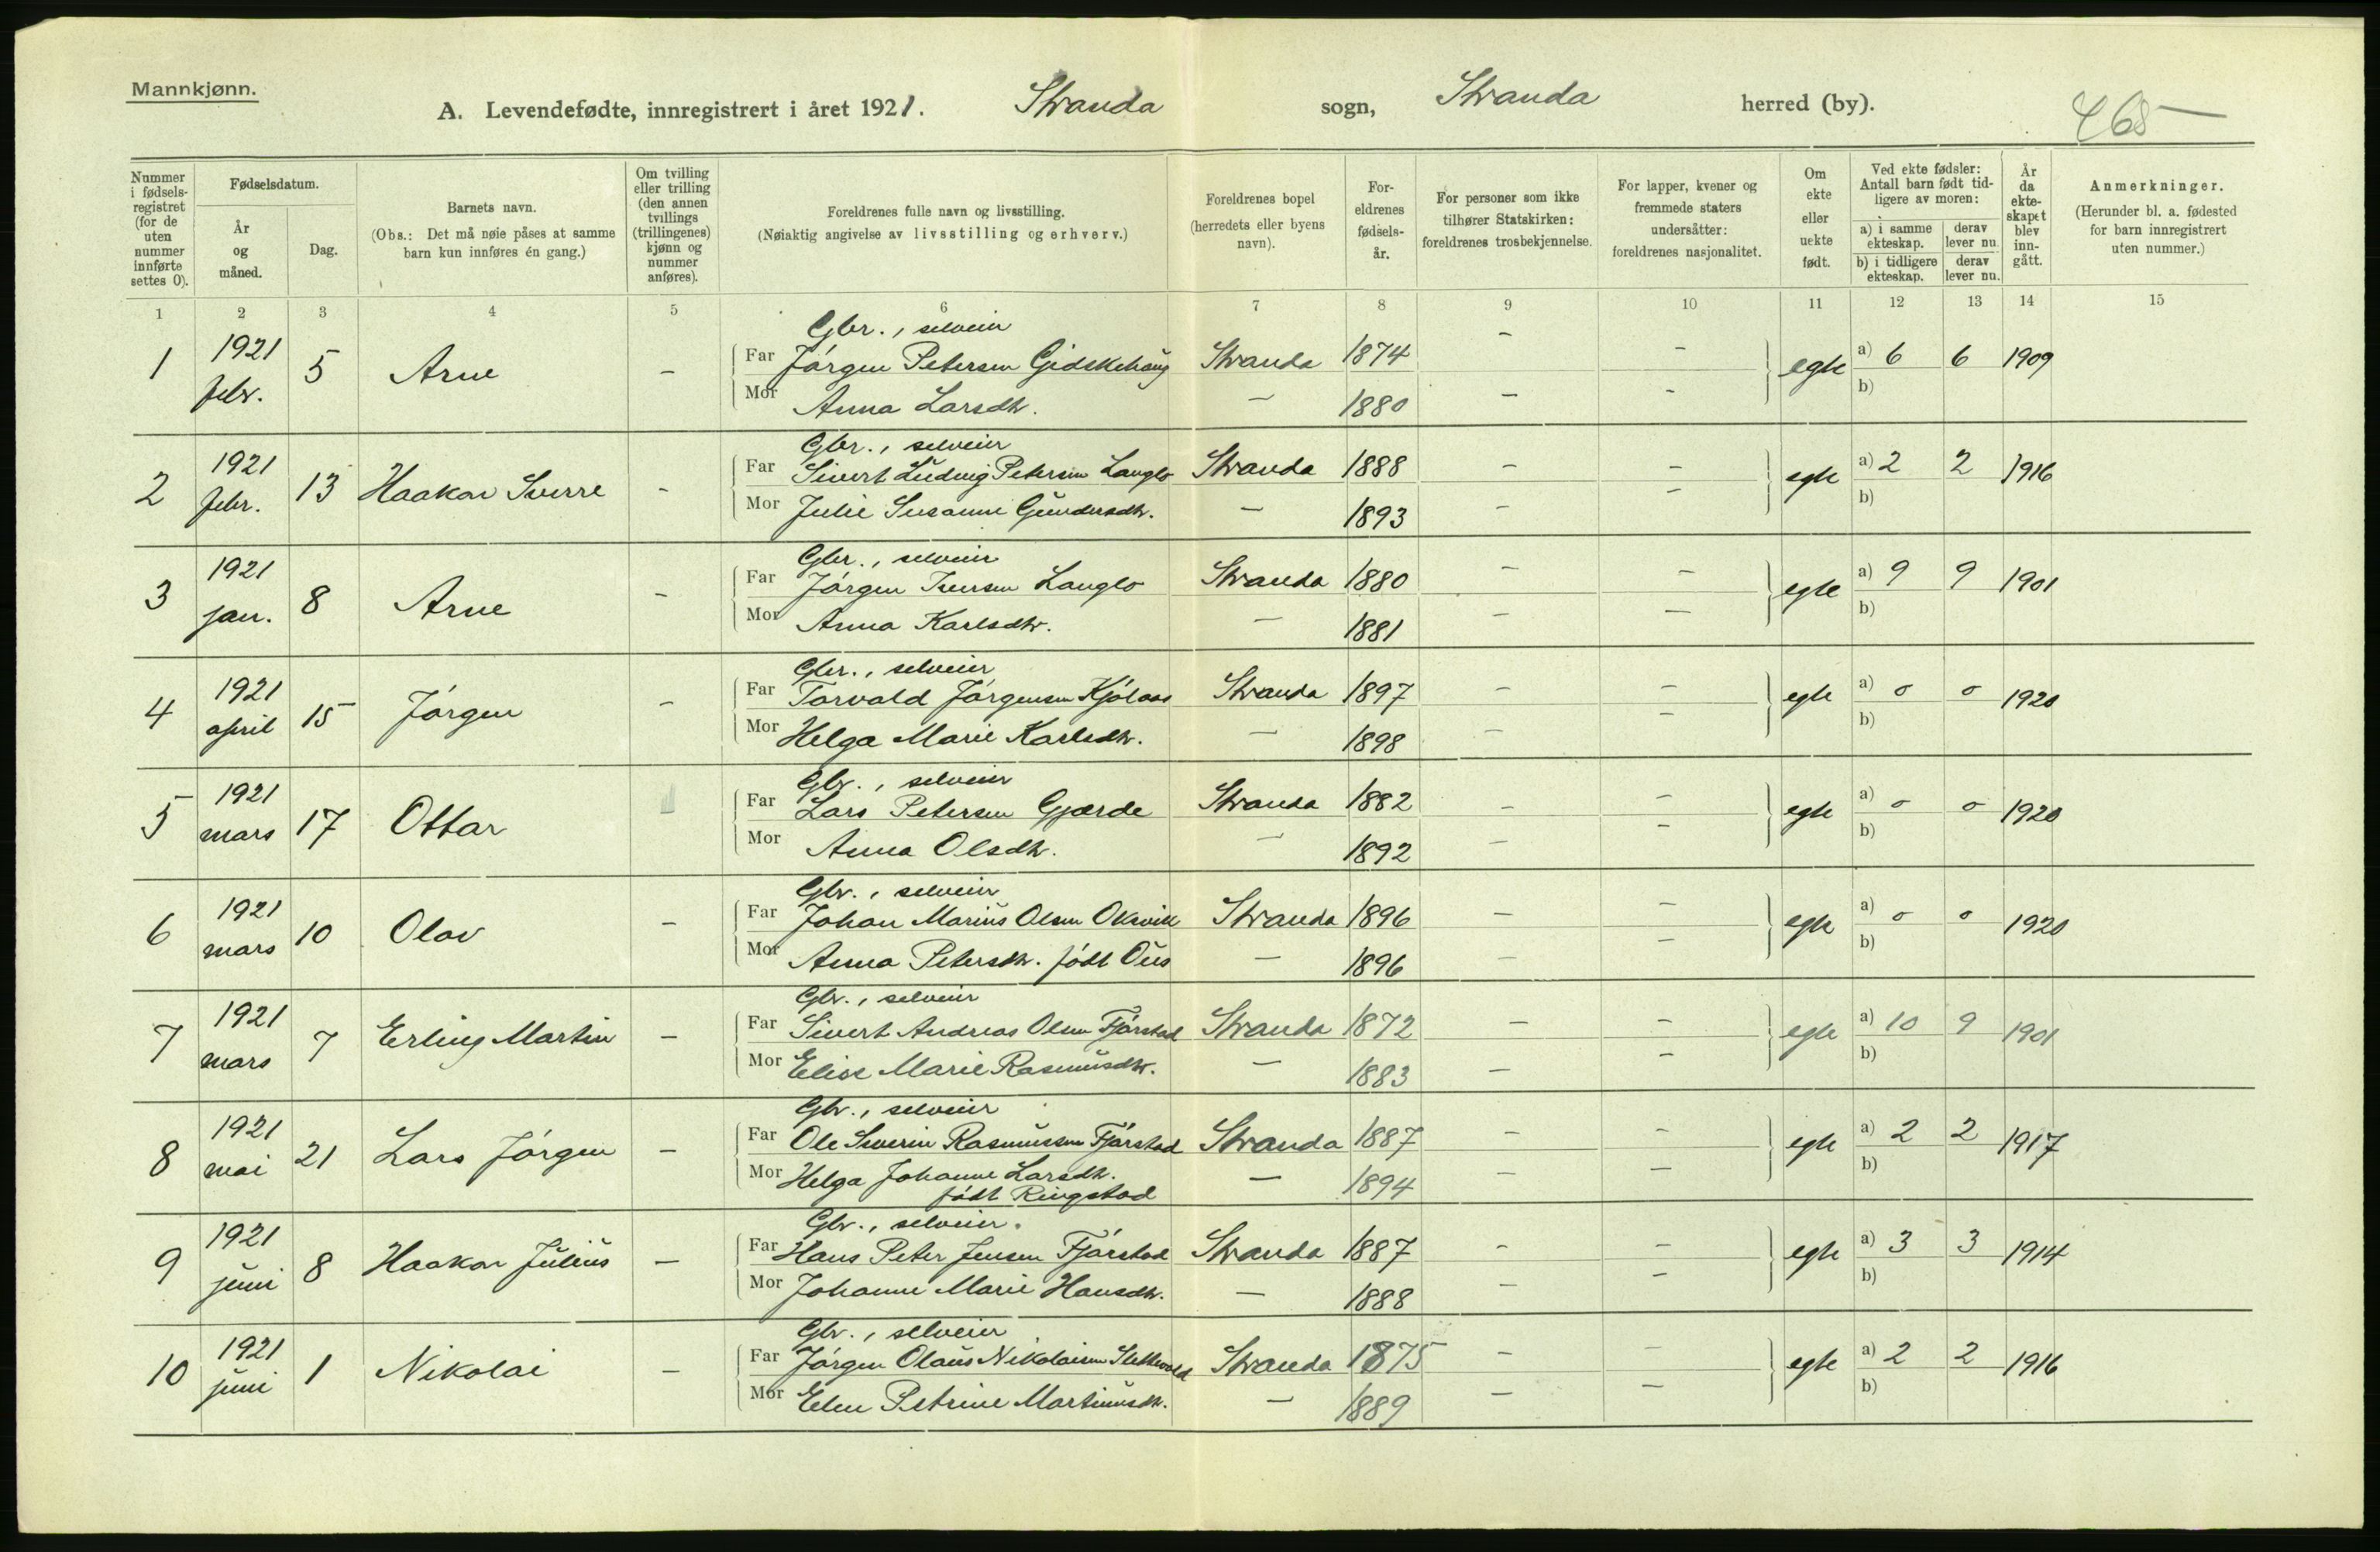 Mannkjønn.
A. Levendefødte, innregistrert i året 1921. Stranda sogn, Stranda herred (by).
465
Nummer i fødselsregistret (for de uten nummer innførte settes 0).
Fødselsdatum.
År og måned.
Dag.
Barnets navn.
(Obs.: Det må nøie påses at samme barn kun innføres én gang.)
Om tvilling eller trilling (den annen tvillings (trillingenes) kjønn og nummer anføres).
Foreldrenes fulle navn og livsstilling.
(Nøiaktig angivelse av livsstilling og erhverv.)
Foreldrenes bopel (herredets eller byens navn).
Foreldrenes fødselsår.
For personer som ikke tilhører Statskirken: foreldrenes trosbekjennelse.
For lapper, kvener og fremmede staters undersåtter: foreldrenes nasjonalitet.
Om ekte eller uekte født.
Ved ekte fødsler: Antall barn født tidligere av moren:
a) i samme ekteskap.
derav lever nu.
b) i tidligere ekteskap.
derav lever nu.
År da ekteskapet blev inngått.
Anmerkninger.
(Herunder bl. a. fødested for barn innregistrert uten nummer.)
1 2 3 4 5 6 7 8 9 10 11 12 13 14 15
Gbr., selveier
1 1921 febr. 5 Arne - Far Jörgen Petersen Gidskehaug Stranda 1874 - - egte a) 6 6 1909
Mor Anna Larsdtr. - 1880 - - b)
Gbr., selveier
2 1921 febr. 13 Haakon Sverre - Far Sivert Ludvig Petersen Langlo Stranda 1888 - - egte a) 2 2 1916
Mor Julie Susanne Gundersdtr. - 1893 - - b)
Gbr., selveier
3 1921 jan. 8 Arne - Far Jörgen Iversen Langlo Stranda 1880 - - egte a) 9 9 1901
Mor Anna Karlsdtr. - 1881 - - b)
Gbr., selveier
4 1921 april 15 Jörgen - Far Torvald Jörgensen Kjölaas Stranda 1897 - - egte a) 0 0 1920
Mor Helga Marie Karlsdtr. - 1898 - - b)
Gbr., selveier
5 1921 mars 17 Ottar Far Lars Petersen Gjærde Stranda 1882 - - egte a) 0 0 1920
Mor Anna Olsdtr. - 1892 - - b)
Gbr., selveier
6 1921 mars 10 Olav - Far Johan Marius Olsen Oksvik Stranda 1896 - - egte a) 0 0 1920
Mor Anna Petersdtr. född Ous - 1896 - - b)
Gbr., selveier
7 1921 mars 7 Erling Martin - Far Sivert Andreas Olsen Fjörstad Stranda 1872 - - egte a) 10 9 1901
Mor Elise Marie Rasmusdtr. - 1883 - - b)
Gbr., selveier
8 1921 mai 21 Lars Jörgen - Far Ole Severin Rasmussen Fjörstad Stranda 1887 - - egte a) 2 2 1917
Mor Helga Johanne Larsdtr. - 1894 - - b)
födt Ringstad
Gbr., selveier.
9 1921 juni 8 Haakon Julius - Far Hans Peter Jensen Fjörstad Stranda 1887 - - egte a) 3 3 1914
Mor Johanne Marie Hansdtr. - 1888 - - b)
Gbr., selveier
10 1921 juni 1 Nikolai - Far Jörgen Olaus Nikolaisen Slettevold Stranda 1875 - - egte a) 2 2 1916
Mor Elen Petrine Martinusdtr. - 1889 - - b)